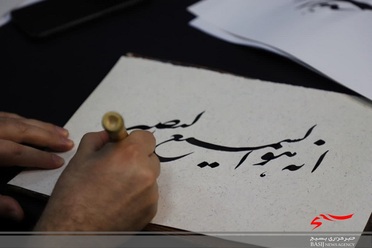 انه هو السمیع البصیر
بسیج
خبرگزاری بسیج
BASIJ NEWS AGENCY